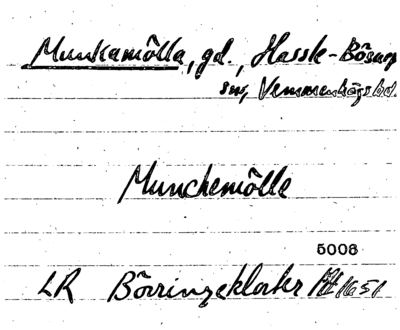 Munkamölla, gd., Hassle-Bösarp
sn, Vemmenhögs hd.
Munchemölle
5006
LR Börringekloster 1651